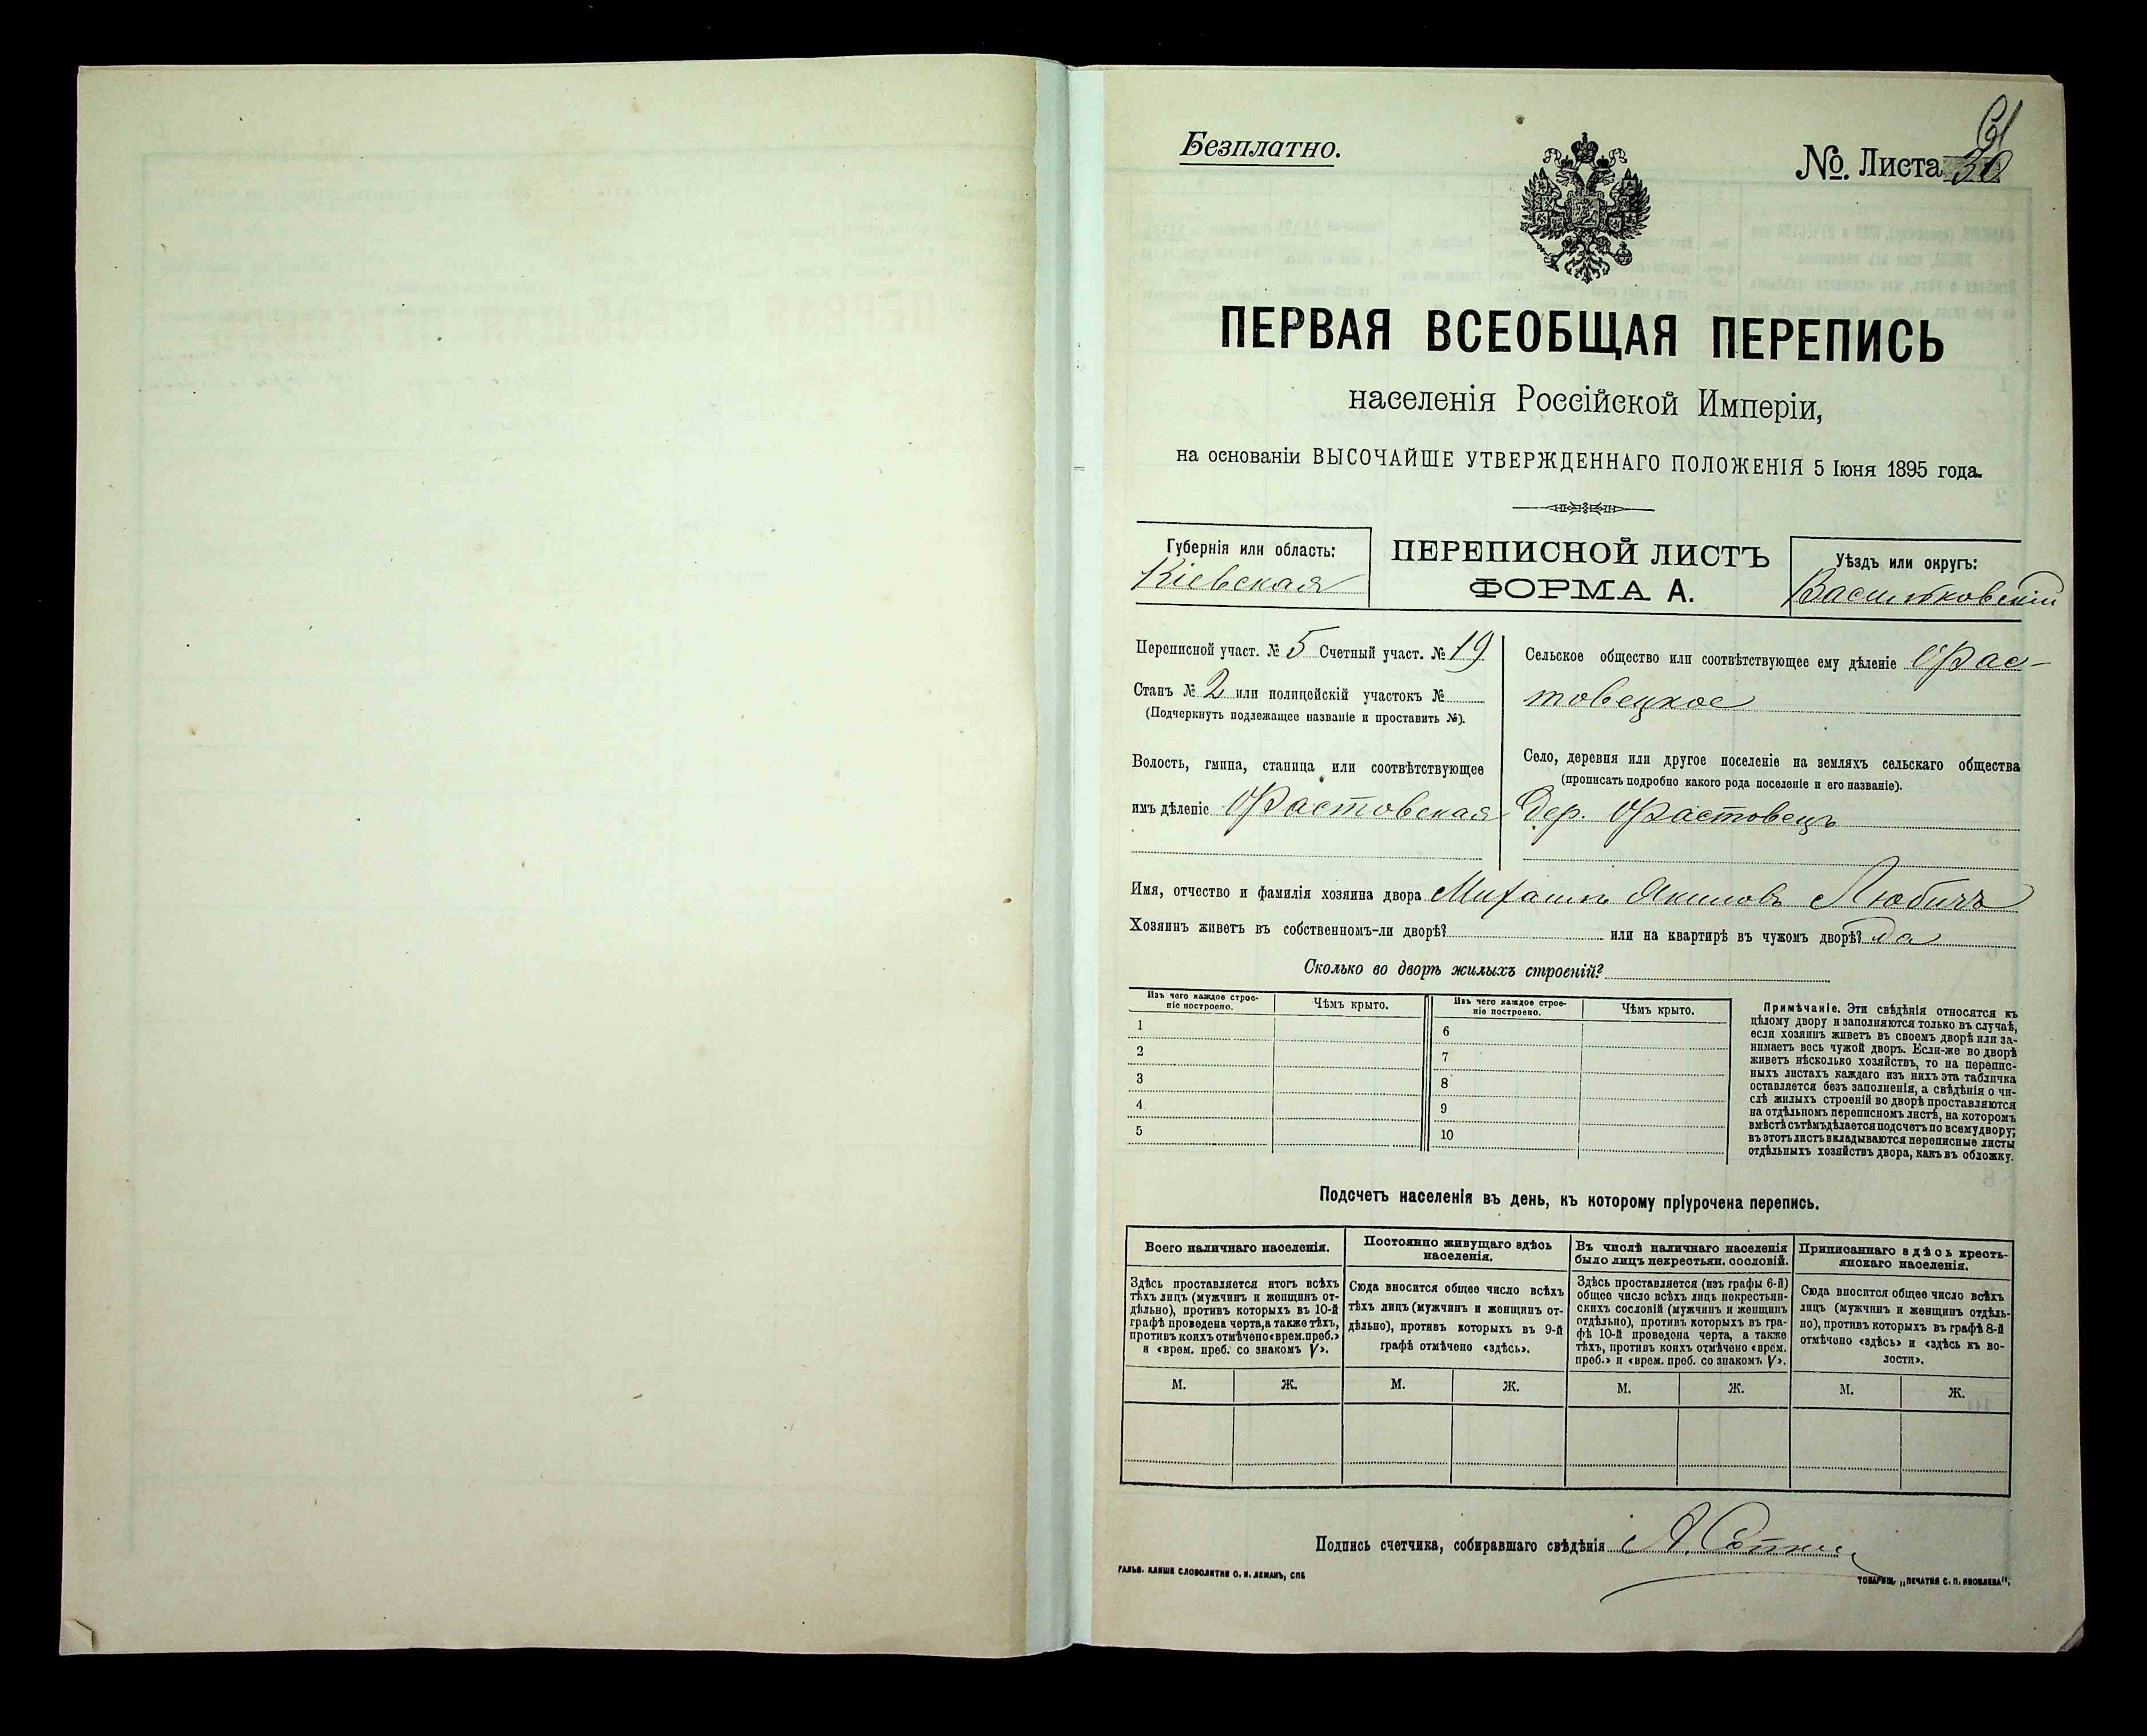 Безплатно.
61
№. Листа 30
ПЕРВАЯ ВСЕОБЩАЯ ПЕРЕПИСЬ
населенія Россійской Имперіи,
на основаніи ВЫСОЧАЙШЕ УТВЕРЖДЕННАГО ПОЛОЖЕНІЯ 5 Іюня 1895 года.
Губернія или область:
Кіевская
ПЕРЕПИСНОЙ ЛИСТЪ
ФОРМА А.
Уѣздъ или округъ:
Васильковскій
Переписной участ. № 5 Счетный участ. № 19
Станъ № 2 или полицейскій участокъ №
(Подчеркнуть подлежащее названіе и проставить №).
Волость, гмина, станица или соотвѣтствующее
имъ дѣленіе Фастовская
Сельское общество или соотвѣтствующее ему дѣленіе Фас-
товецкое
Село, деревня или другое поселеніе на земляхъ сельскаго общества
(прописать подробно какого рода поселеніе и его названіе).
Дер. Фастовецъ
Имя, отчество и фамилія хозяина двора Михаилъ Якимовъ Любичъ
Хозяинъ живетъ въ собственномъ-ли дворѣ? или на квартирѣ въ чужомъ дворѣ? да
Сколько во дворѣ жилыхъ строеній?
Изъ чего каждое строе-
ніе построено.
Чѣмъ крыто.
Изъ чего каждое строе-
ніе построено.
Чѣмъ крыто.
1 6
2 7
3 8
4 9
5 10
Примѣчаніе. Эти свѣдѣнія относятся къ
цѣлому двору и заполняются только въ случаѣ,
если хозяинъ живетъ въ своемъ дворѣ или за-
нимаетъ весь чужой дворъ. Если-же во дворѣ
живетъ нѣсколько хозяйствъ, то на перепис-
ныхъ листахъ каждаго изъ нихъ эта табличка
оставляется безъ заполненія, а свѣдѣнія о чи-
слѣ жилыхъ строеній во дворѣ проставляются
на отдѣльномъ переписномъ листѣ, на которомъ
вмѣстѣ съ тѣмъ дѣлается подсчетъ по всему двору;
въ этотъ листъ вкладываются переписные листы
отдѣльныхъ хозяйствъ двора, какъ въ обложку.
Подсчетъ населенія въ день, къ которому пріурочена перепись.
Всего наличнаго населенія.
Здѣсь проставляется итогъ всѣхъ
тѣхъ лицъ (мужчинъ и женщинъ от-
дѣльно), противъ которыхъ въ 10-й
графѣ проведена черта, а также тѣхъ,
противъ коихъ отмѣчено «врем. преб.»
и «врем. преб. со знакомъ V».
Постоянно живущаго здѣсь
населенія.
Сюда вносится общее число всѣхъ
тѣхъ лицъ (мужчинъ и женщинъ от-
дѣльно), противъ которыхъ въ 9-й
графѣ отмѣчено «здѣсь».
Въ числѣ наличнаго населенія
было лицъ некрестьян. сословій.
Здѣсь проставляется (изъ графы 6-й)
общее число всѣхъ лицъ некрестьян-
скихъ сословій (мужчинъ и женщинъ
отдѣльно), противъ которыхъ въ гра-
фѣ 10-й проведена черта, а также
тѣхъ, противъ коихъ отмѣчено «врем.
преб.» и «врем. преб. со знакомъ V».
Приписаннаго здѣсь кресть-
янскаго населенія.
Сюда вносится общее число всѣхъ
лицъ (мужчинъ и женщинъ отдѣль-
но), противъ которыхъ въ графѣ 8-й
отмѣчено «здѣсь» и «здѣсь къ во-
лости».
М. Ж. М. Ж. М. Ж. М. Ж.
Подпись счетчика, собиравшаго свѣдѣнія А.
ГАЛЬВ. КЛИШЕ СЛОВОЛИТНИ О. И. ЛЕМАНЪ, СПБ
ТОВАРИЩ. „ПЕЧАТНЯ С. П. ЯКОВЛЕВА“.